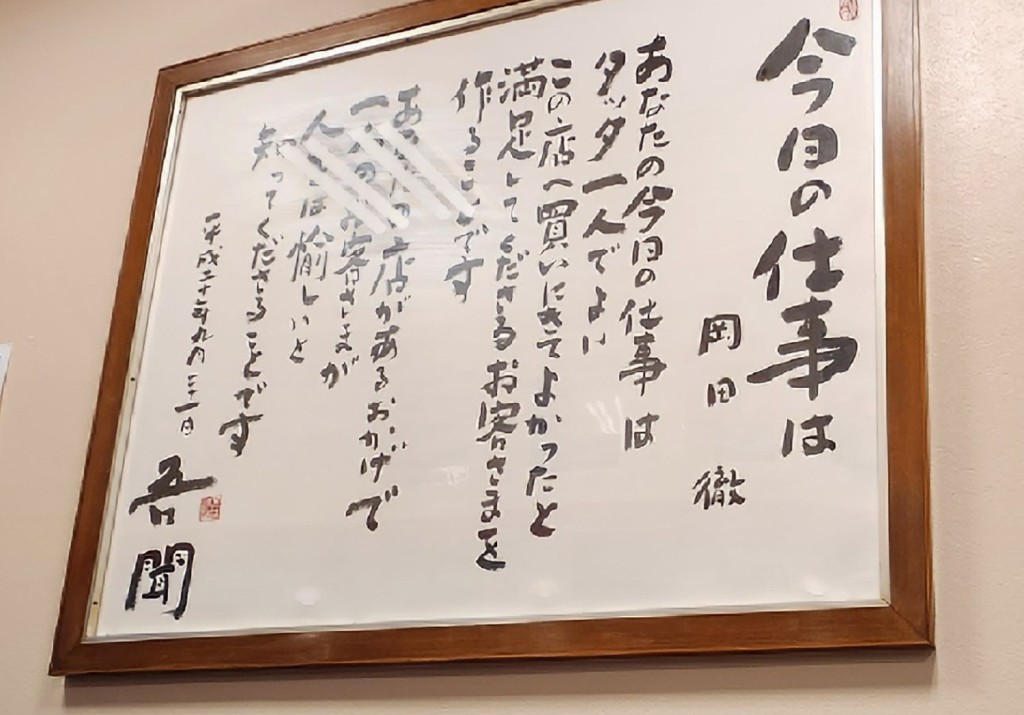 今日の仕事は
岡田 徹
あなたの今日の仕事は
タッタ一人でよい
この店へ買いにきてよかったと
満足してくださるお客さまを
作ることです
あなたの店があるおかげで
一人のお客さまが
人生は愉しいと
知ってくださることです
平成二十年九月二十一日
吾聞